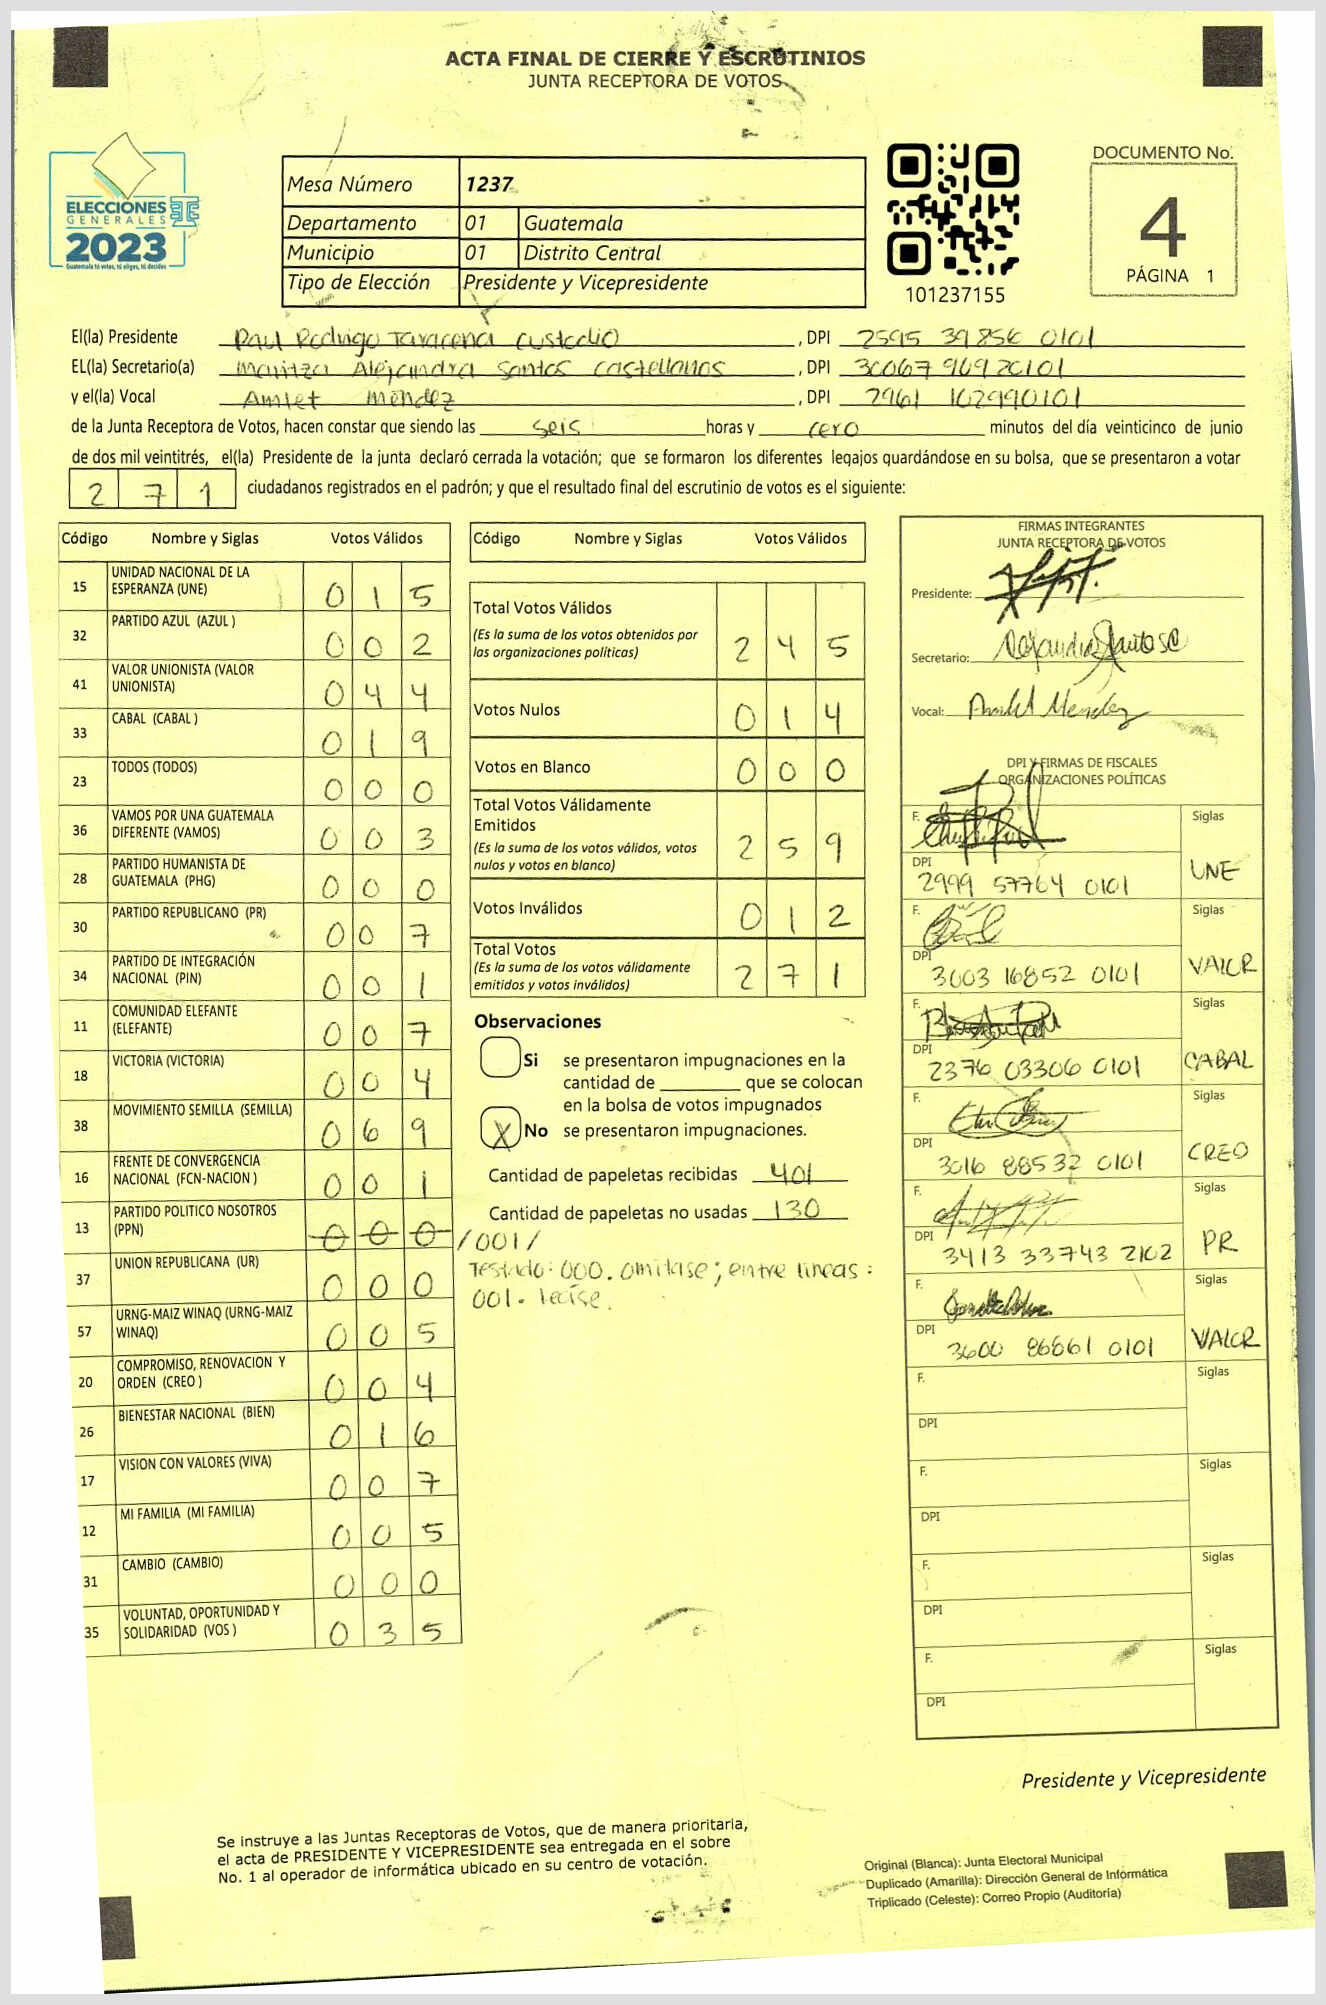 ACTA FINAL DE CIERRE Y ESCRUTINIOS
JUNTA RECEPTORA DE VOTOS
ELECCIONES
GENERALES
2023
Guatemala tú votas, tú eliges, tú decides
Mesa Número 1237
Departamento 01 Guatemala
Municipio 01 Distrito Central
Tipo de Elección Presidente y Vicepresidente
101237155
DOCUMENTO No.
4
PÁGINA 1
El(la) Presidente Paul Rodrigo Taracena Custodio , DPI 2595 39856 0101
EL(la) Secretario(a) Maritza Alejandra Santos Castellanos , DPI 30067 96920101
y el(la) Vocal Amlet Méndez , DPI 2961 102990101
de la Junta Receptora de Votos, hacen constar que siendo las seis horas y cero minutos del día veinticinco de junio
de dos mil veintitrés, el(la) Presidente de la junta declaró cerrada la votación; que se formaron los diferentes legajos guardándose en su bolsa, que se presentaron a votar
2 7 1 ciudadanos registrados en el padrón; y que el resultado final del escrutinio de votos es el siguiente:
Código Nombre y Siglas Votos Válidos
15 UNIDAD NACIONAL DE LA
ESPERANZA (UNE) 0 1 5
32 PARTIDO AZUL (AZUL ) 0 0 2
41 VALOR UNIONISTA (VALOR
UNIONISTA) 0 4 4
33 CABAL (CABAL ) 0 1 9
23 TODOS (TODOS) 0 0 0
36 VAMOS POR UNA GUATEMALA
DIFERENTE (VAMOS) 0 0 3
28 PARTIDO HUMANISTA DE
GUATEMALA (PHG) 0 0 0
30 PARTIDO REPUBLICANO (PR) 0 0 7
34 PARTIDO DE INTEGRACIÓN
NACIONAL (PIN) 0 0 1
11 COMUNIDAD ELEFANTE
(ELEFANTE) 0 0 7
18 VICTORIA (VICTORIA) 0 0 4
38 MOVIMIENTO SEMILLA (SEMILLA) 0 6 9
16 FRENTE DE CONVERGENCIA
NACIONAL (FCN-NACION ) 0 0 1
13 PARTIDO POLITICO NOSOTROS
(PPN) 0 0 0 /001/
37 UNION REPUBLICANA (UR) 0 0 0
57 URNG-MAIZ WINAQ (URNG-MAIZ
WINAQ) 0 0 5
20 COMPROMISO, RENOVACION Y
ORDEN (CREO ) 0 0 4
26 BIENESTAR NACIONAL (BIEN) 0 1 6
17 VISION CON VALORES (VIVA) 0 0 7
12 MI FAMILIA (MI FAMILIA) 0 0 5
31 CAMBIO (CAMBIO) 0 0 0
35 VOLUNTAD, OPORTUNIDAD Y
SOLIDARIDAD (VOS ) 0 3 5
Código Nombre y Siglas Votos Válidos
Total Votos Válidos
(Es la suma de los votos obtenidos por
las organizaciones políticas) 2 4 5
Votos Nulos 0 1 4
Votos en Blanco 0 0 0
Total Votos Válidamente
Emitidos
(Es la suma de los votos válidos, votos
nulos y votos en blanco) 2 5 9
Votos Inválidos 0 1 2
Total Votos
(Es la suma de los votos válidamente
emitidos y votos inválidos) 2 7 1
Observaciones
Si se presentaron impugnaciones en la
cantidad de ________ que se colocan
en la bolsa de votos impugnados
X No se presentaron impugnaciones.
Cantidad de papeletas recibidas 401
Cantidad de papeletas no usadas 130
Testado: 000. omitase; entre lineas:
001. lease.
FIRMAS INTEGRANTES
JUNTA RECEPTORA DE VOTOS
Presidente:
Secretario:
Vocal: Amlet Mendez
DPI Y FIRMAS DE FISCALES
ORGANIZACIONES POLÍTICAS
F. Siglas
DPI 2999 57764 0101 UNE
F. Siglas
DPI 3003 16852 0101 VALOR
F. Siglas
DPI 2376 03306 0101 CABAL
F. Siglas
DPI 3016 88532 0101 CREO
F. Siglas
DPI 3413 33743 2102 PR
F. Siglas
DPI 3600 86861 0101 VALOR
F. Siglas
DPI
F. Siglas
DPI
F. Siglas
DPI
F. Siglas
DPI
Presidente y Vicepresidente
Se instruye a las Juntas Receptoras de Votos, que de manera prioritaria,
el acta de PRESIDENTE Y VICEPRESIDENTE sea entregada en el sobre
No. 1 al operador de informática ubicado en su centro de votación.
Original (Blanca): Junta Electoral Municipal
Duplicado (Amarilla): Dirección General de Informática
Triplicado (Celeste): Correo Propio (Auditoría)